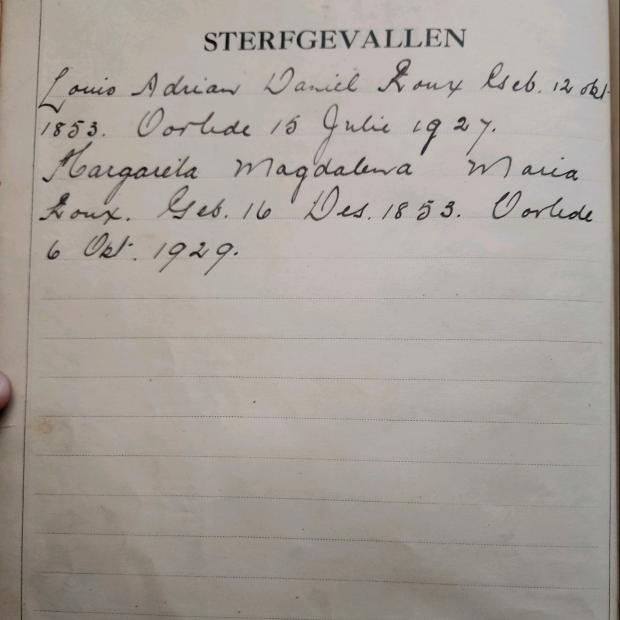 STERFGEVALLEN
Louis Adrian Daniel Roux Geb. 12 Okt.
1853. Oorlede 15 Julie 1927.
Margareta Magdalena Maria
Roux. Geb. 16 Des. 1853. Oorlede
6 Okt. 1929.